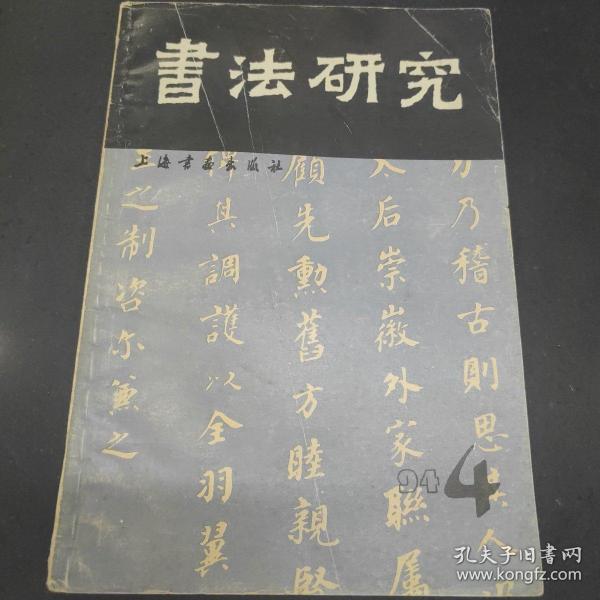 書法研究
上海書画出版社
乃稽古則思
太后崇徽外家聯属
顧先勲舊方睦親賢
其調護以全羽翼
之制咨尓兼之
94 4
孔夫子旧书网
www.kongfz.com